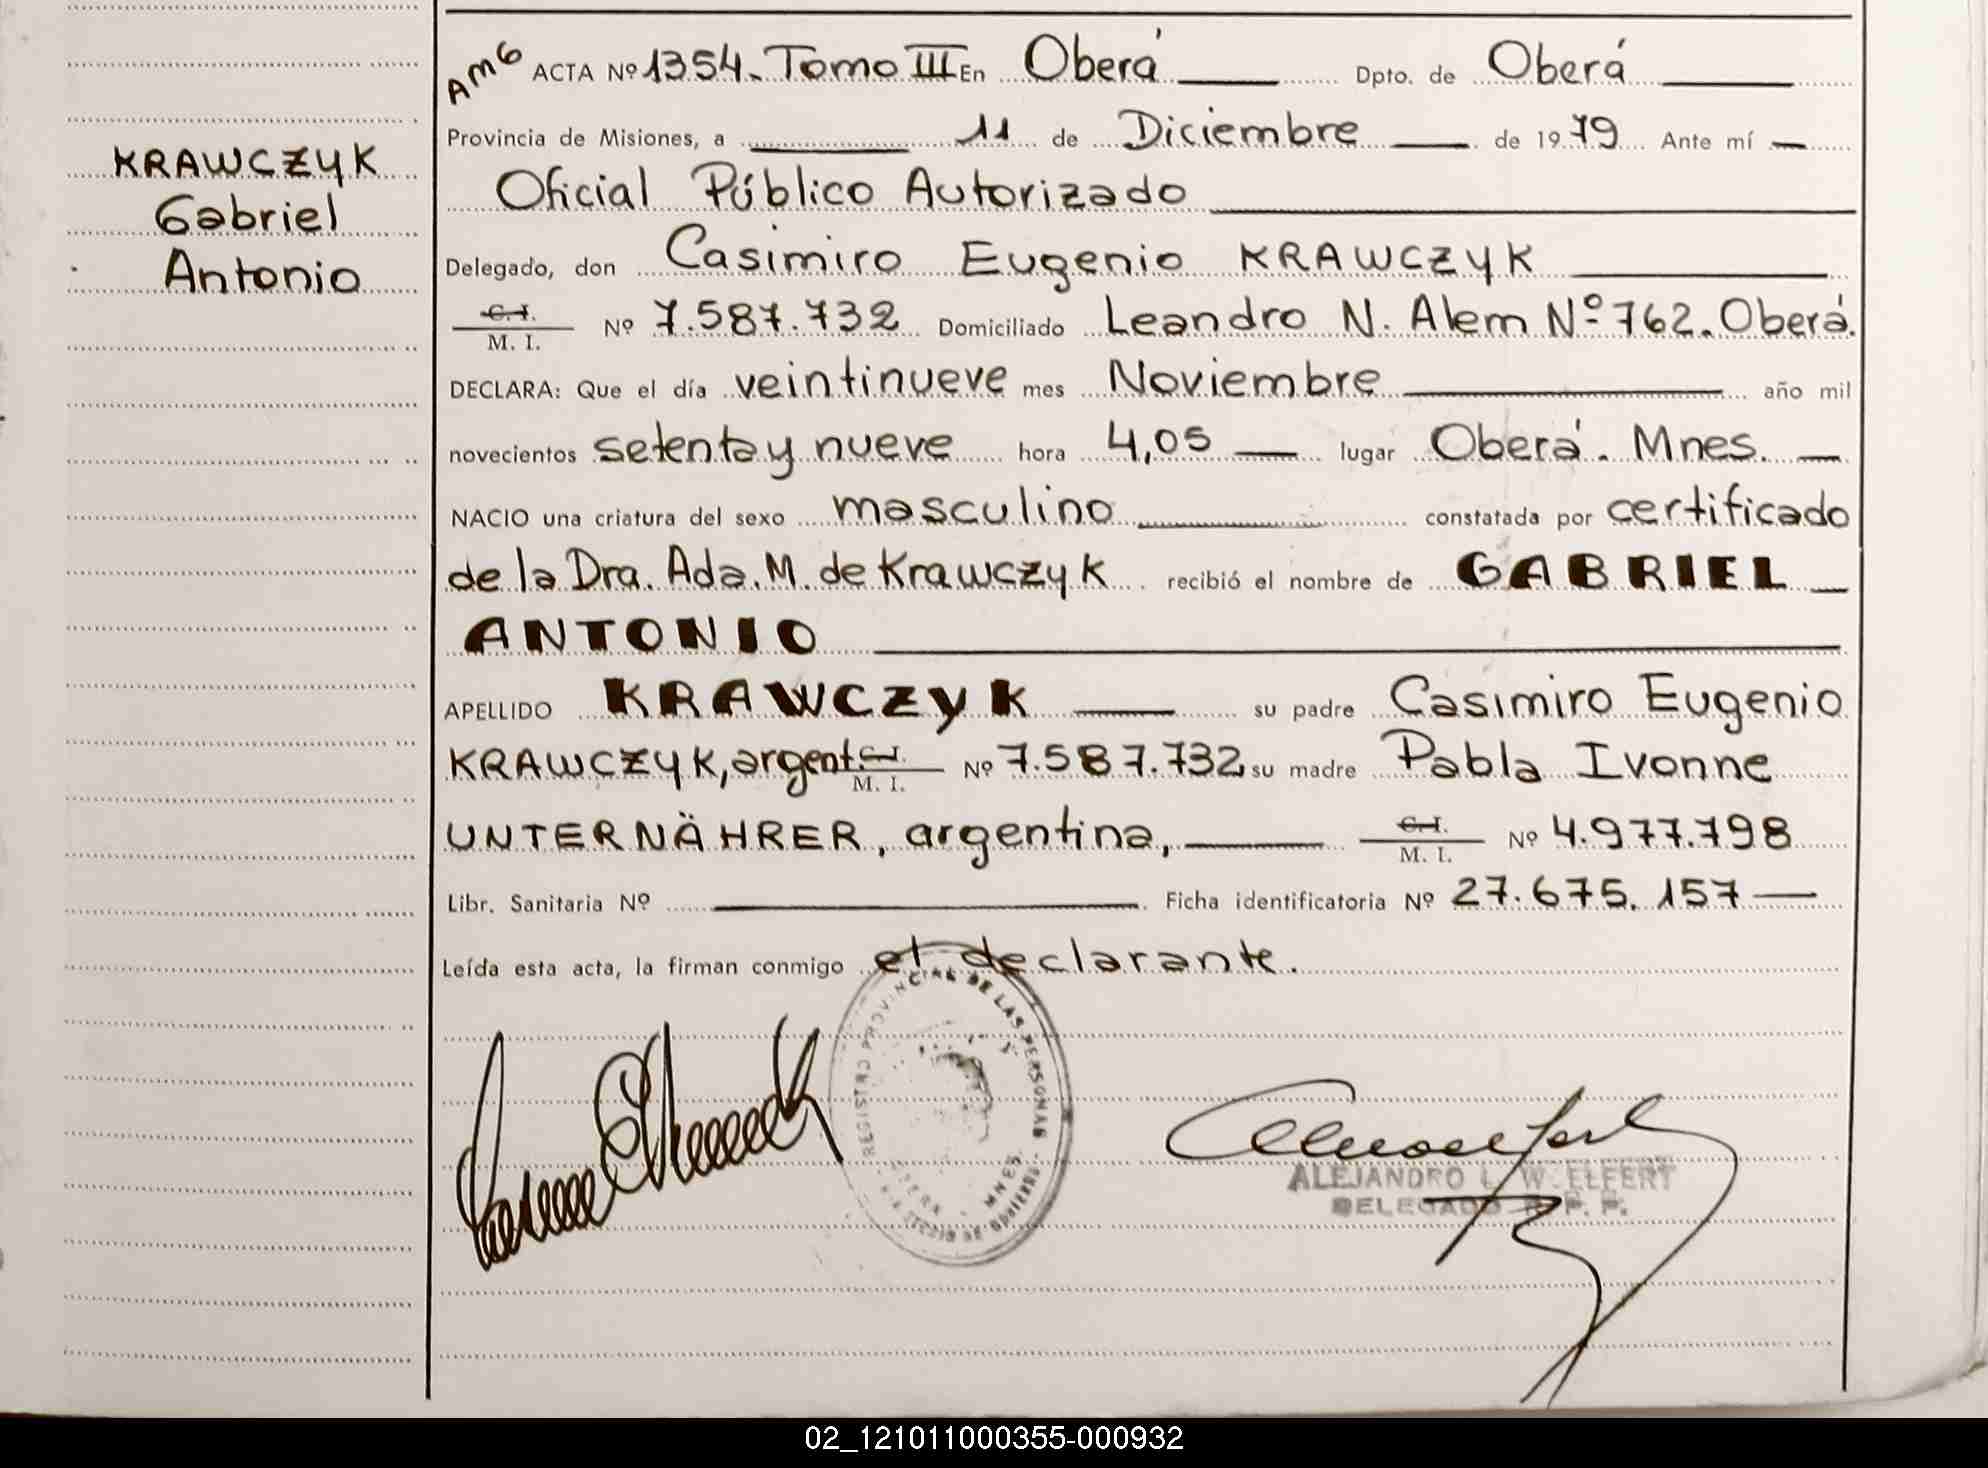 KRAWCZYK
Gabriel
Antonio
AMG ACTA Nº 1354. Tomo III En Oberá Dpto. de Oberá
Provincia de Misiones, a 11 de Diciembre de 1979 Ante mí
Oficial Público Autorizado
Delegado, don Casimiro Eugenio KRAWCZYK
C.I. M. I. Nº 7.587.732 Domiciliado Leandro N. Alem Nº 762. Oberá.
DECLARA: Que el día veintinueve mes Noviembre año mil
novecientos setenta y nueve hora 4,05 lugar Oberá. Mnes.
NACIO una criatura del sexo masculino constatada por certificado
de la Dra. Ada. M. de Krawczyk recibió el nombre de GABRIEL
ANTONIO
APELLIDO KRAWCZYK su padre Casimiro Eugenio
KRAWCZYK, argent. C.I. M. I. Nº 7.587.732, su madre Pabla Ivonne
UNTERNÄHRER, argentina, C.I. M. I. Nº 4.977.798
Libr. Sanitaria Nº Ficha identificatoria Nº 27.675.157
Leída esta acta, la firman conmigo el declarante.
REGISTRO PROVINCIAL DE LAS PERSONAS
MNES.
ALEJANDRO L. W. ELFERT
DELEGADO R. P. P.
02_121011000355-000932